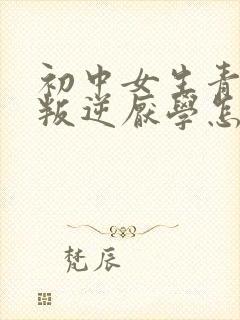 初中女生青
叛逆厌學怎
梵辰